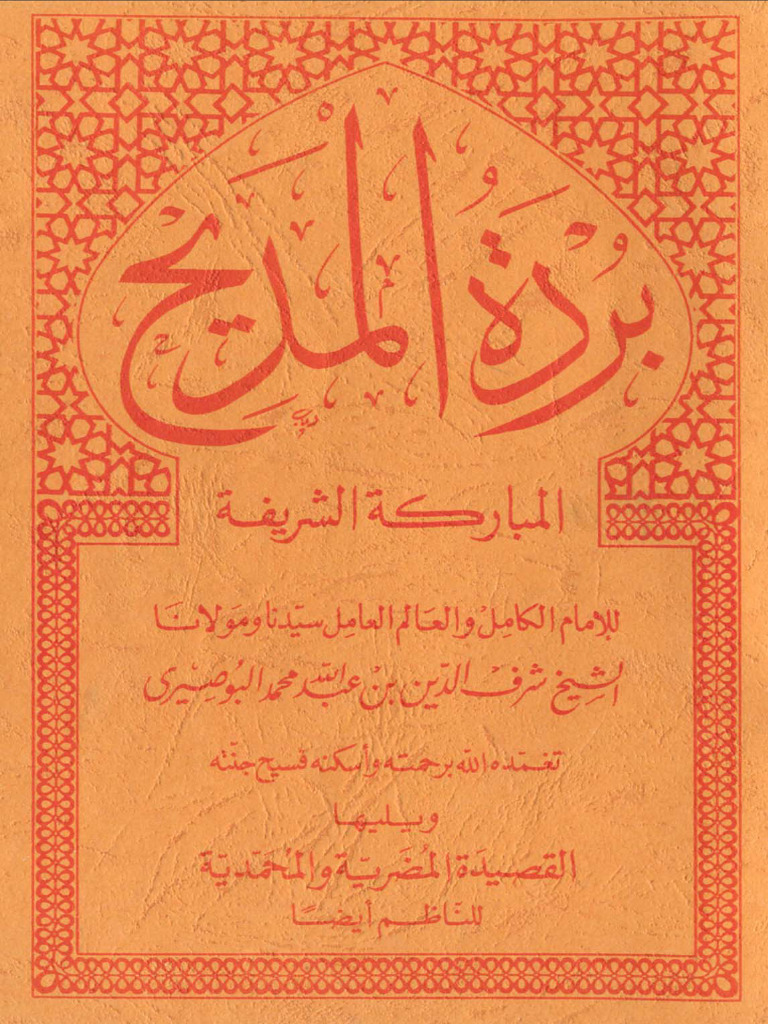 بُردَةُ المَدِيح
المباركة الشريفة
للإمام الكامِلْ والعَالم العامِل سيّدنا ومَولانَا
الشِيخ شرفْ الدّين بنْ عبد اللّه محمد البُوصِيْرى
تغمّده اللّه برحمته وأسكنه فسيح جنّته
ويليها
القصيدَة المُضَريّة والمُحَمّديّة
للنّاظم أيضًا